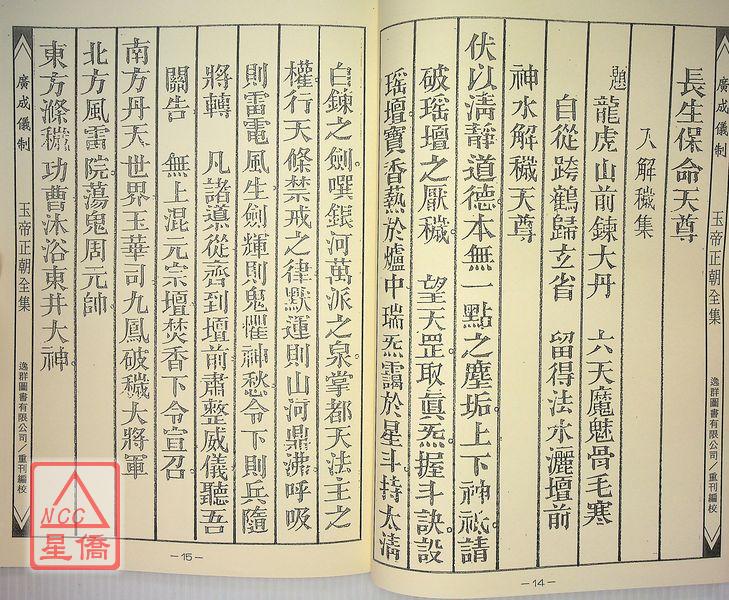 廣成儀制 玉帝正朝全集 逸群圖書有限公司／重刊編校
長生保命天尊
入解穢集
題 龍虎山前鍊大丹 六天魔魅骨毛寒
自從跨鶴歸玄省 留得法水灑壇前
神水解穢天尊
伏以淸靜道德本無一點之塵垢上下神祇請
破瑶壇之厭穢 望天罡取眞炁握斗訣設
瑶壇寶香爇於爐中瑞炁靄於星斗持太淸
—14—
白鍊之劍噀銀河萬派之泉掌都天法主之
權行天條禁戒之律默運則山河鼎沸呼吸
則雷電風生劍輝則鬼懼神愁令下則兵隨
將轉 凡諸導從齊到壇前肅整威儀聽吾
關告 無上混元宗壇焚香下令宣召
南方丹天世界玉華司九鳳破穢大將軍
北方風雷院蕩鬼周元帥
東方滌穢功曹沐浴東井大神
廣成儀制 玉帝正朝全集 逸群圖書有限公司／重刊編校
—15—
NCC
星僑